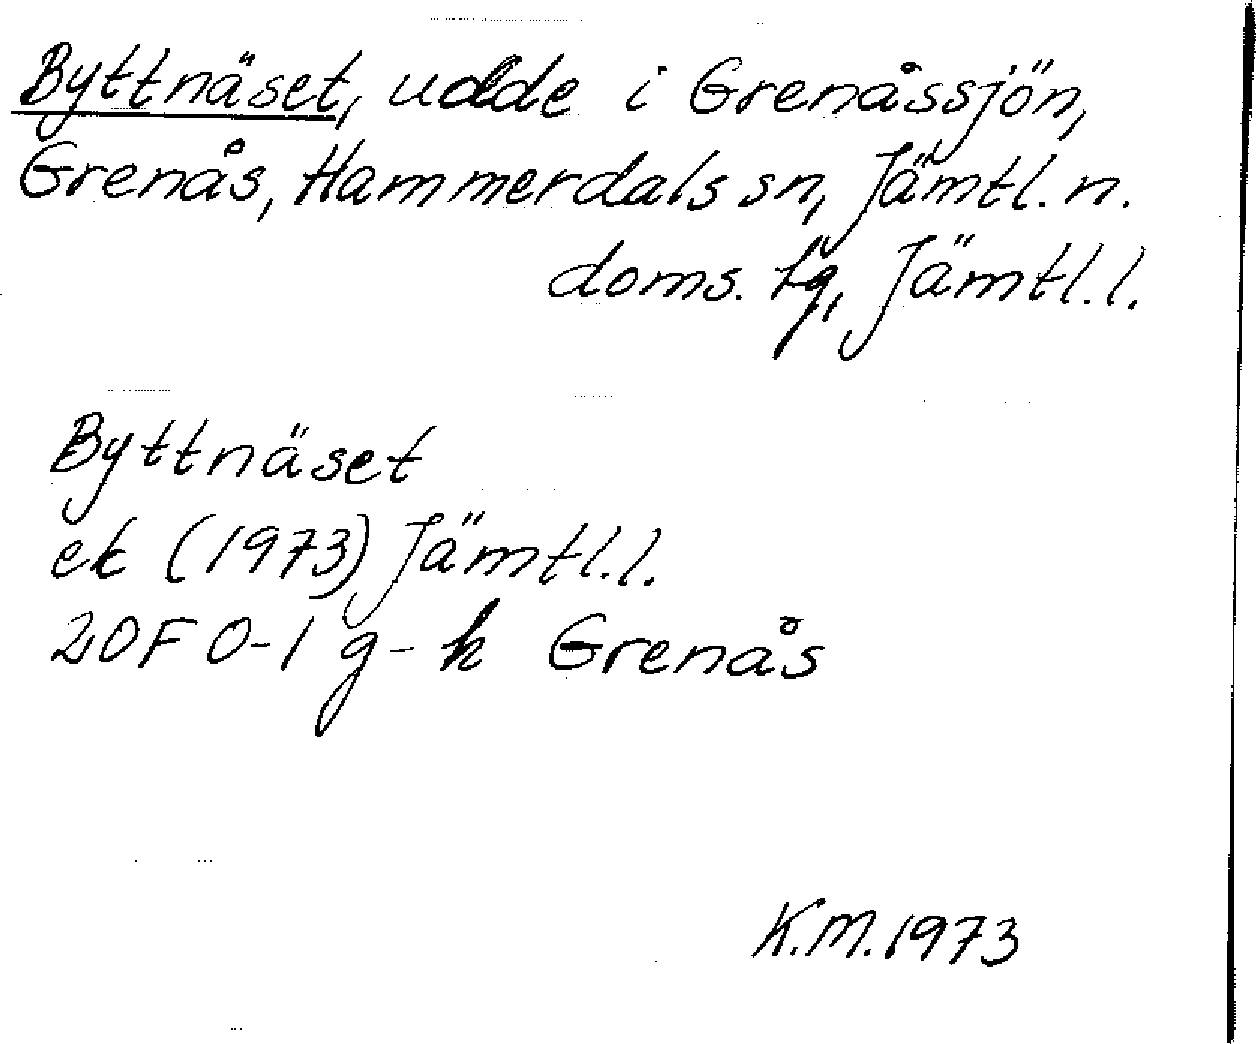 Byttnäset, udde i Grenåssjön,
Grenås, Hammerdals sn, Jämtl. n.
doms. tg, Jämtl. l.
Byttnäset
ek (1973) Jämtl. l.
20F 0-1 g-h Grenås
K.M. 1973